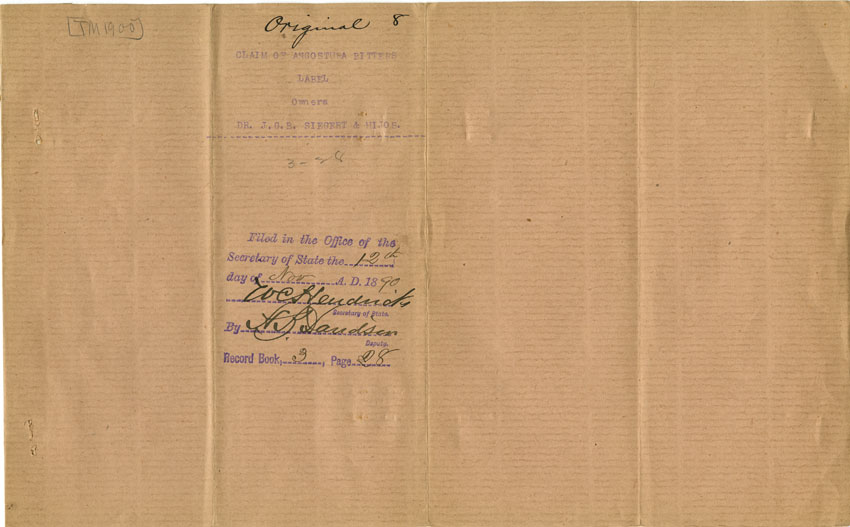 [TM1900]
Original 8
CLAIM OF ANGOSTURA BITTERS
LABEL
Owners
DR. J.G.B. SIEGERT & HIJOS.
3-28
Filed in the Office of the
Secretary of State the 12th
day of Nov A. D. 1890
W C Hendricks
Secretary of State.
By
Deputy.
Record Book, 3, Page 28